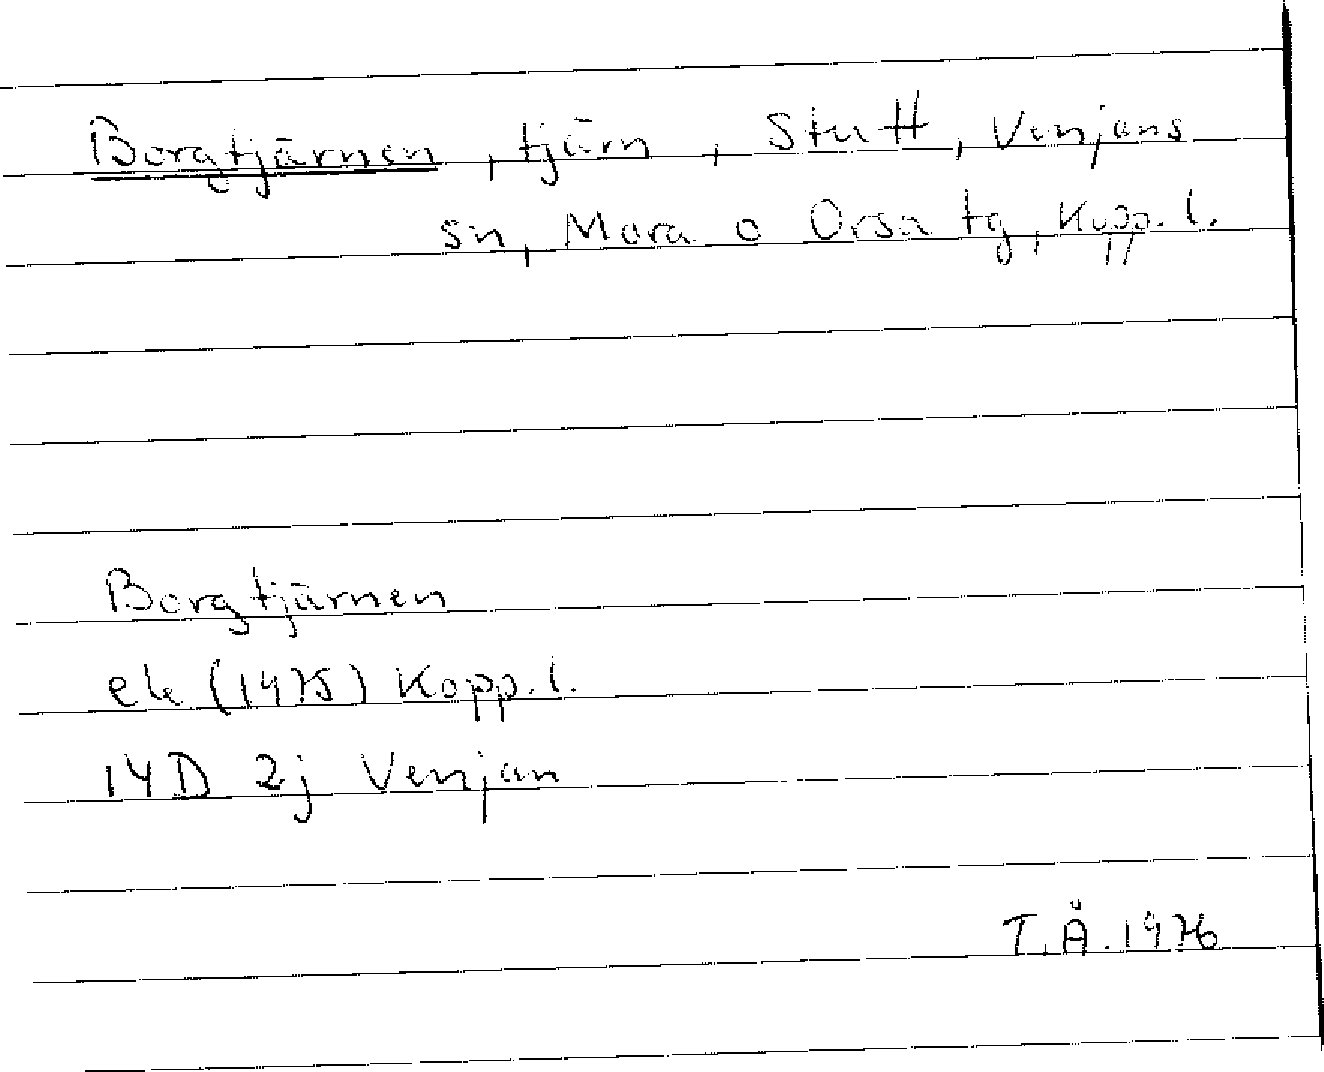 Borgtjärnen, tjärn, Stutt, Venjans
sn, Mora o Orsa tg, Kopp. l.
Borgtjärnen
ek (1975) Kopp. l.
14D 2j Venjan
T. Å. 1976